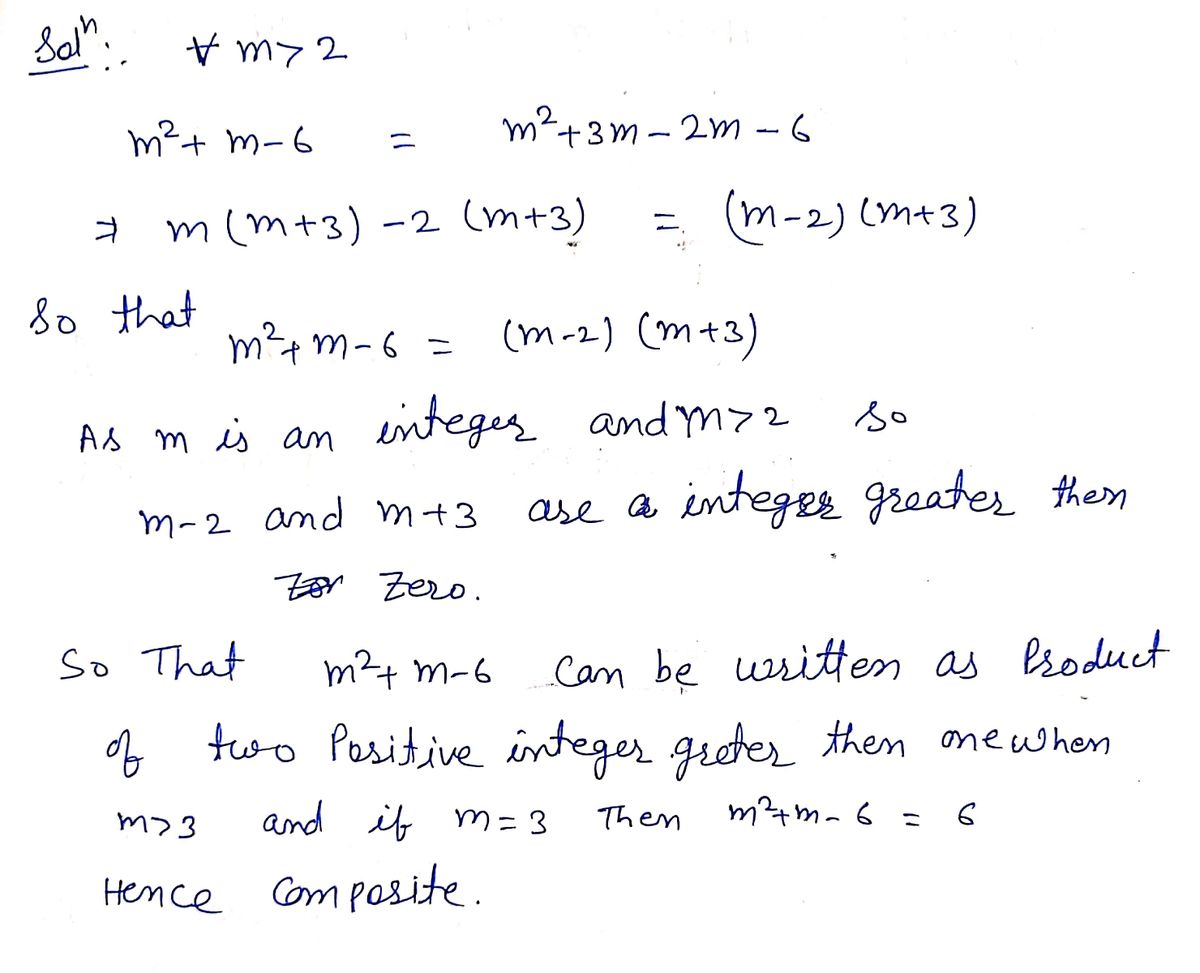 Solⁿ:. ∀ m > 2
m²+ m-6 = m²+3m - 2m - 6
⇒ m (m+3) -2 (m+3) = (m-2) (m+3)
So that m²+m-6 = (m-2) (m+3)
As m is an integer and m>2 so
m-2 and m+3 are a integer greater then
Zero.
So That m²+ m-6 Can be written as Product
of two Positive integer greter then one when
m>3 and if m=3 Then m²+m-6 = 6
Hence Composite.